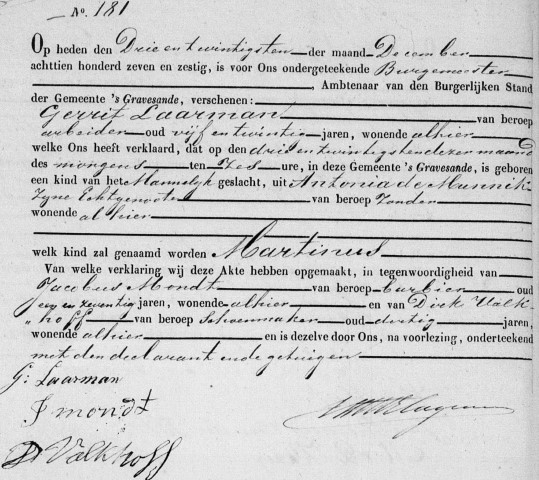 No. 181
Op heden den Drie en twintigsten der maand December
achttien honderd zeven en zestig, is voor Ons ondergeteekende Burgemeester
, Ambtenaar van den Burgerlijken Stand
der Gemeente 's Gravesande, verschenen:
Gerrit Laarman van beroep
arbeider oud vijf en twintig jaren, wonende alhier
welke Ons heeft verklaard, dat op den drie en twintigsten dezer maand
des morgens ten Zes ure, in deze Gemeente 's Gravesande, is geboren
een kind van het Mannelyk geslacht, uit Antonia de Munnik
Zyne Echtgenoote van beroep Zonder
wonende alhier
welk kind zal genaamd worden Martinus
Van welke verklaring wij deze Akte hebben opgemaakt, in tegenwoordigheid van
Jacobus Mondt van beroep barbier oud
en zeventig jaren, wonende alhier en van Dirk Valk-
„hoff van beroep Schoenmaker oud dertig jaren,
wonende alhier en is dezelve door Ons, na voorlezing, onderteekend
met den declarant en de getuigen
G: Laarman
J mondt
D Valkhoff